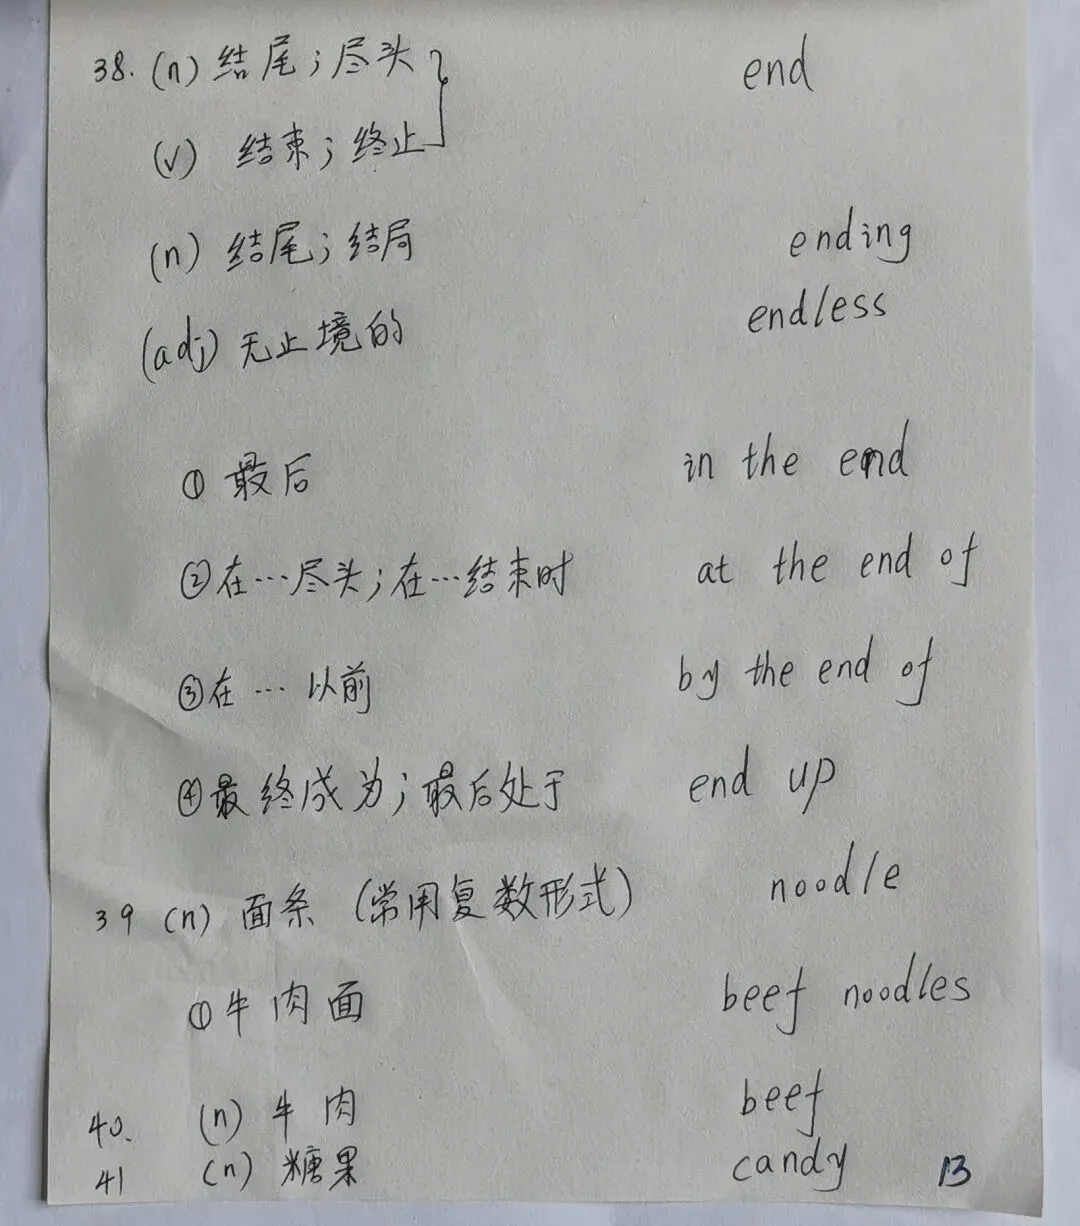 38. (n) 结尾；尽头 end
(v) 结束；终止
(n) 结尾；结局 ending
(adj) 无止境的 endless
① 最后 in the end
②在…尽头；在…结束时 at the end of
③在…以前 by the end of
④最终成为；最后处于 end up
39 (n) 面条（常用复数形式） noodle
①牛肉面 beef noodles
40. (n) 牛肉 beef
41 (n) 糖果 candy 13